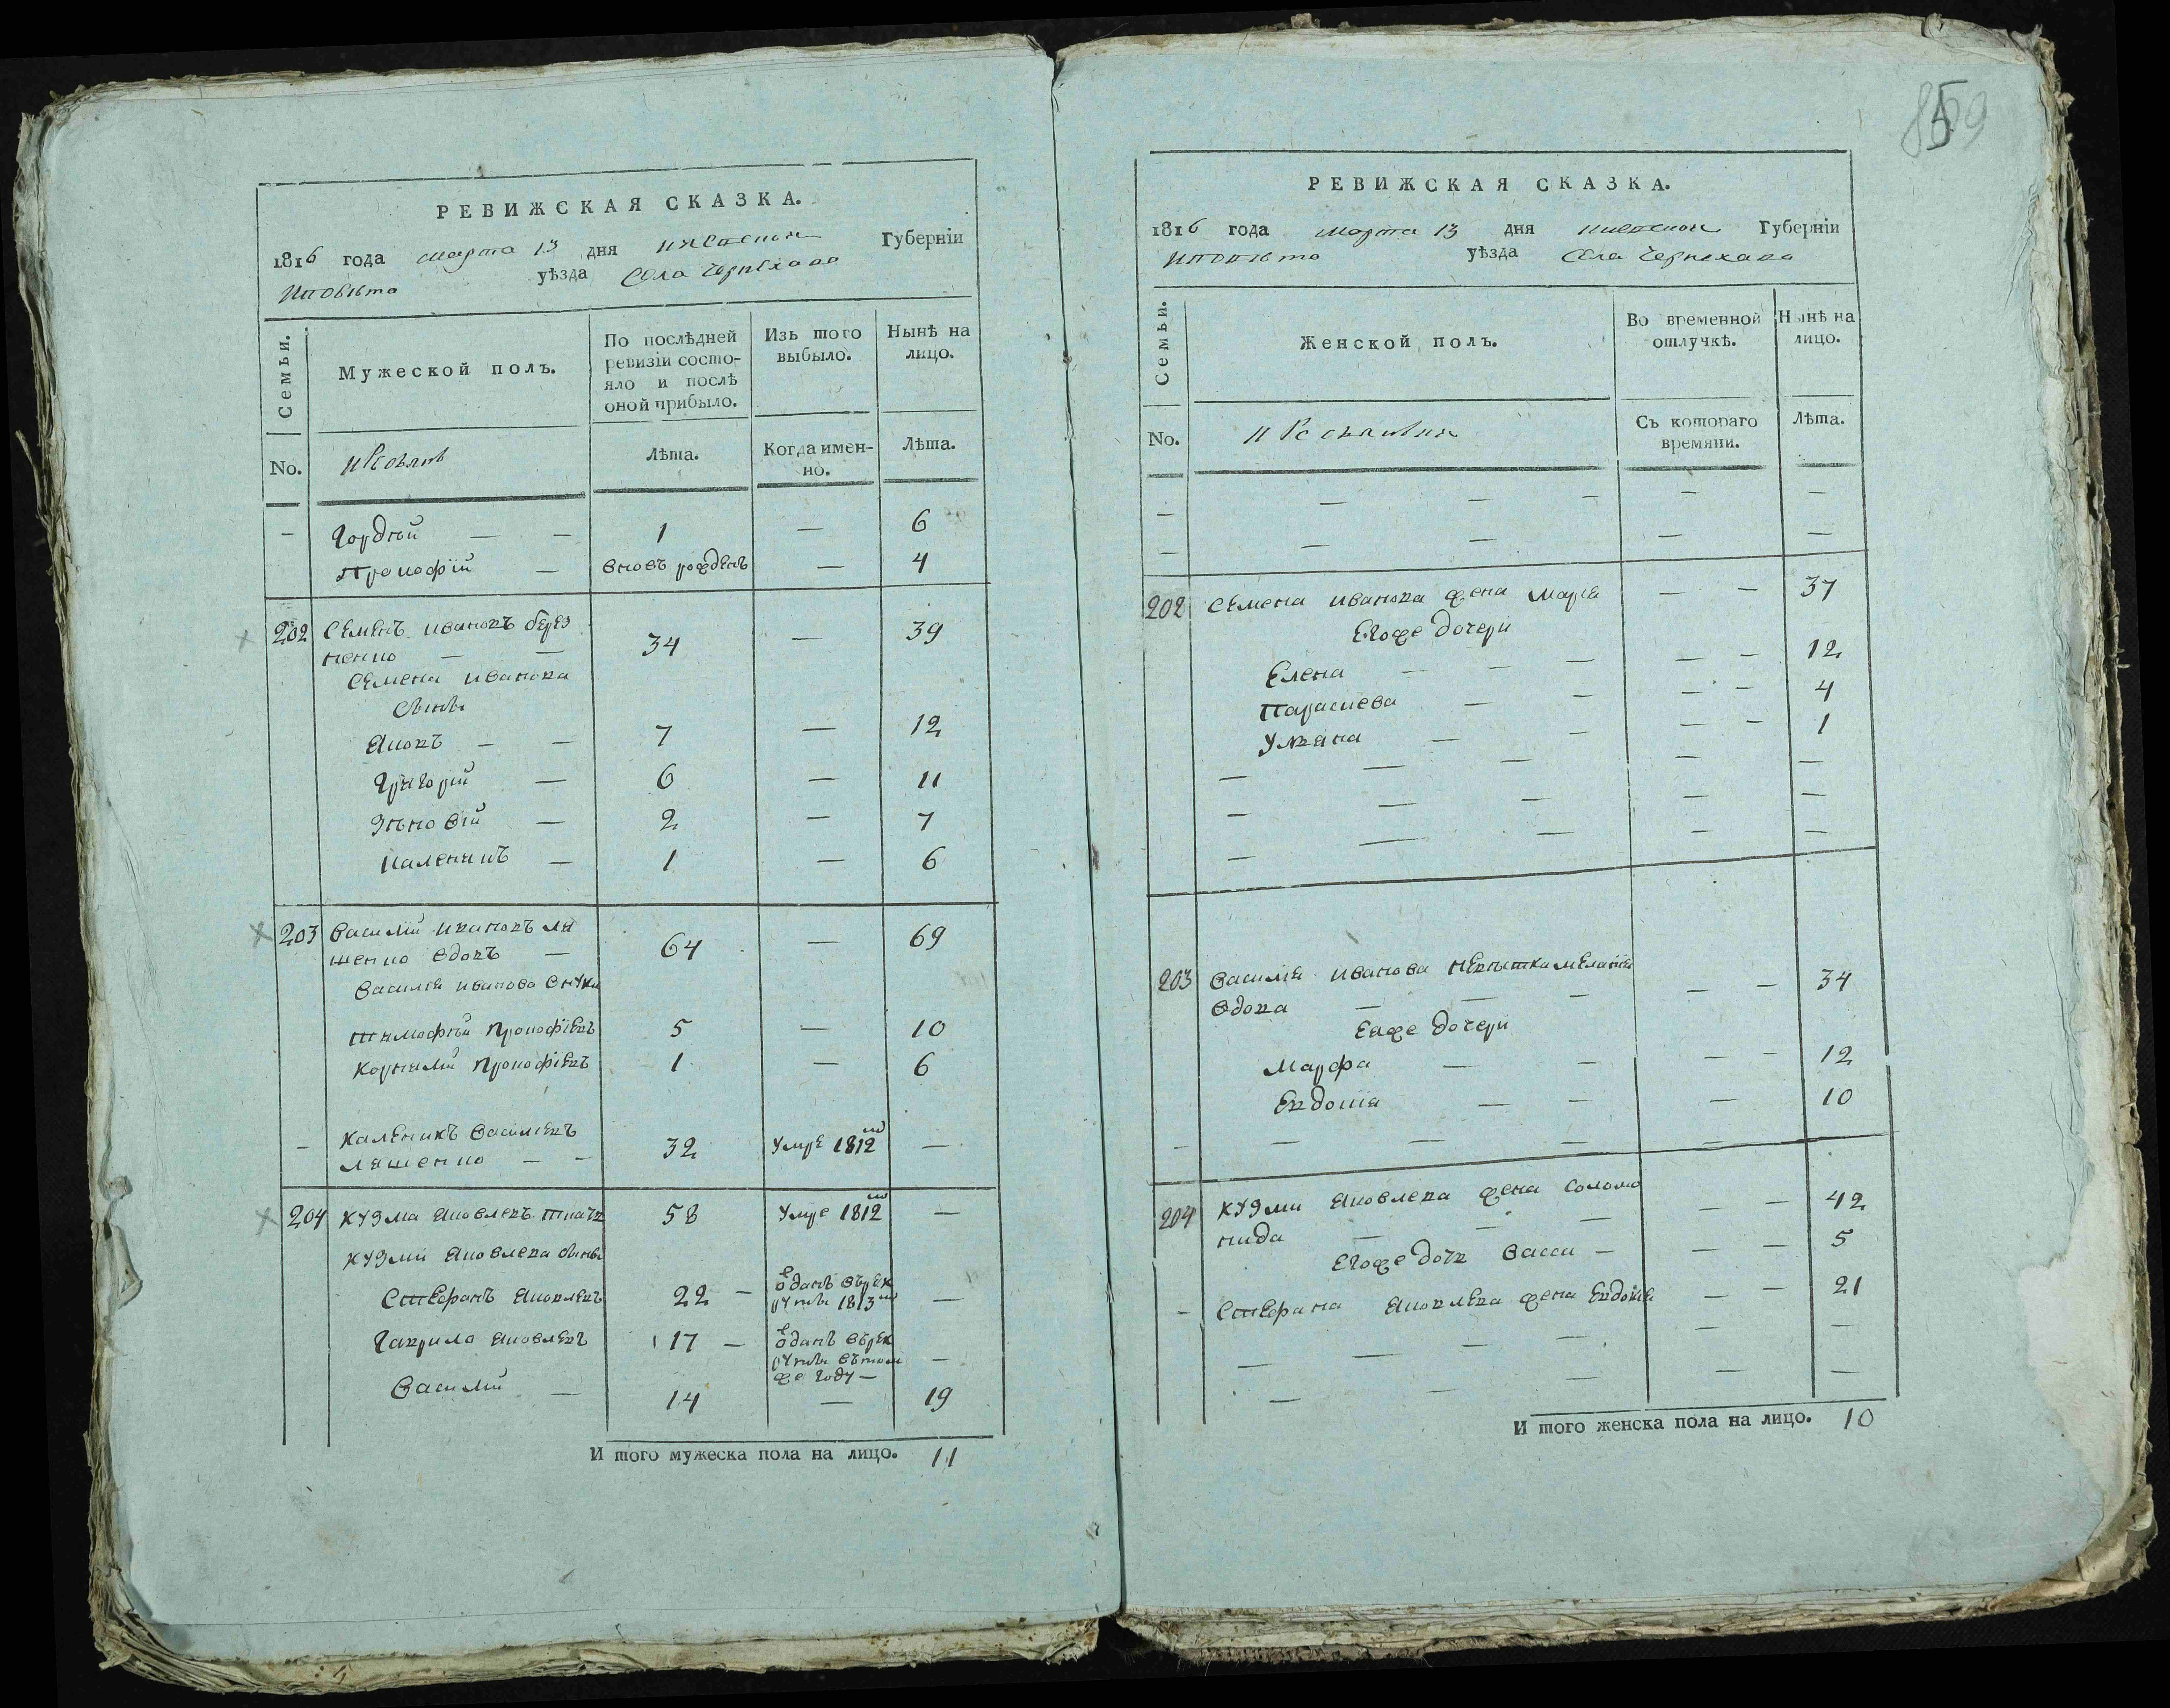 РЕВИЖСКАЯ СКАЗКА.
1816 года марта 13 дня Киевской Губерніи
уѣзда Села Черняхова
Семьи.
Мужеской полъ.
По послѣдней ревизіи состо-
яло и послѣ
оной прибыло.
Изъ того
выбыло.
Нынѣ на
лицо.
No.
Лѣта.
Когда имен-
но.
Лѣта.
— Гордѣй — — 1 — 6
Прокофій — вновъ рожденъ — 4
202 Семенъ Ивановъ берез
ненко — — 34 — 39
Семена Иванова
сынъ
Яковъ — — 7 — 12
Григорій — 6 — 11
Зѣновій — 2 — 7
Каленикъ — 1 — 6
203 Василій Ивановъ ля
шенко вдовъ — 64 — 69
Василія Иванова внуки
Тимофѣй Прокофіевъ 5 — 10
Корнилій Прокофіевъ 1 — 6
— Каленикъ Васильевъ
Ляшенко — — 32 Умре 1812 —
204 Кузма Яковлевъ 58 Умре 1812 —
Кузми Яковлева сыны
Стефанъ Яковлевъ 22 — оданъ врек
руты 1813 —
Гаврило Яковлевъ 17 — оданъ врек
руты втом
же году — —
Василій — 14 — 19
И того мужеска пола на лицо. 11
859
РЕВИЖСКАЯ СКАЗКА.
1816 года марта 13 дня Киевской Губерніи
уѣзда Села Черняхова
Семьи.
Женской полъ.
Во временной
отлучкѣ.
Нынѣ на
лицо.
No.
Съ котораго
времяни.
Лѣта.
— — — — — —
— — — — —
202 Семена Иванова жена Марія — — 37
Егоже дочери
Елена — — — — — 12
Параскева — — — — 4
Уляна — — — — 1
— — — — —
— — — — —
— — — — —
203 Василія Иванова невѣстка Меланія
вдова — — — — — 34
Еяже дочери
Марфа — — — — 12
Евдокія — — — 10
— — — — —
204 Кузми Яковлева жена Соломо
нида — — — — — 42
Егоже дочь Васса — — — 5
— Стефана Яковлева жена Евдокія — — 21
— — — — — —
— — — — —
И того женска пола на лицо. 10